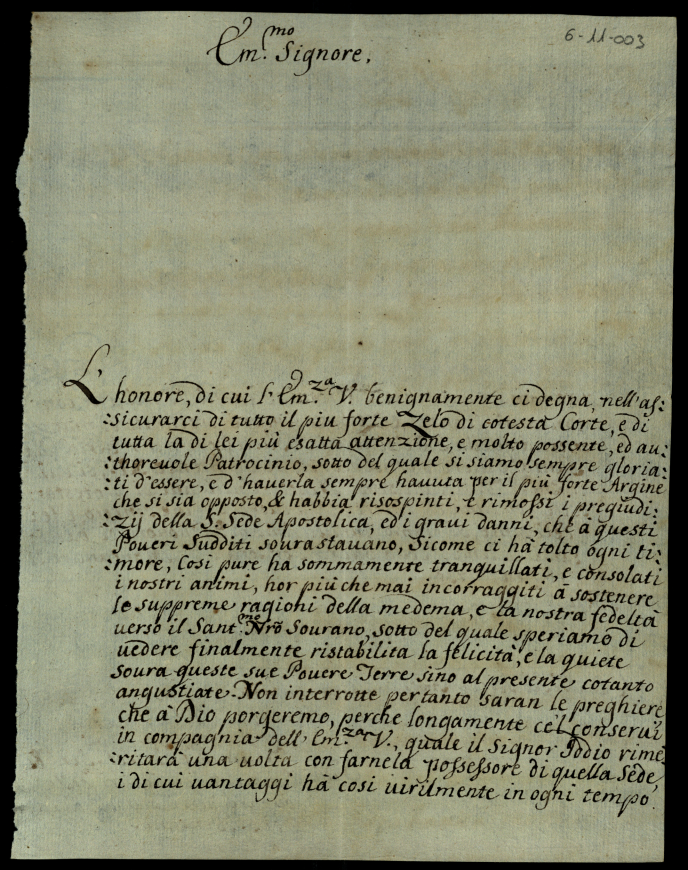 6-11-003
Em.mo Signore.
L'honore, di cui l'Em.za V. benignamente ci degna, nell'as:
:sicurarci di tutto il piu forte Zelo di cotesta Corte, e di
tutta la di lei più esatta attenzione, e molto possente, ed au:
:thorevole Patrocinio, sotto del quale si siamo sempre gloria:
:ti d'essere, e d'haverla sempre havuta per il più forte Argine
che si sia opposto, & habbia risospinti, e rimossi i pregiudi:
:zij della S. Sede Apostolica, ed i gravi danni, che à questi
Poveri Sudditi sourastauano, Sicome ci hà tolto ogni ti:
:more, Così pure ha sommamente tranquillati, e consolati
i nostri animi, hor più che mai incorraggiti à sostenere
le suppreme ragioni della medema, e la nostra fedeltà
verso il Sant.mo Nrõ Sourano, sotto del quale speriamo di
uedere finalmente ristabilita la felicità, e la quiete
soura queste sue Povere Terre sino al presente cotanto
angustiate. Non interrotte pertanto saran le preghiere
che à Dio porgeremo, perche longamente cel conserui
in compagnia dell'Em.za V., quale il Signor Iddio rime:
:ritarà una uolta con farnela possessore di quella Sede
i di cui uantaggi hà così uirilmente in ogni tempo